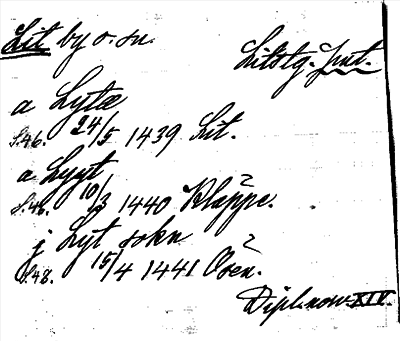 Lit by o. sn.
Litstg. Jmt.
a Lytæ
S.46. 24/5 1439 Lit.
a Lyyt
S.48. 10/3 1440 Kläppe.
j Lyt sokn
S.48. 15/4 1441 Ösen.
Dipl. norv. XIV.